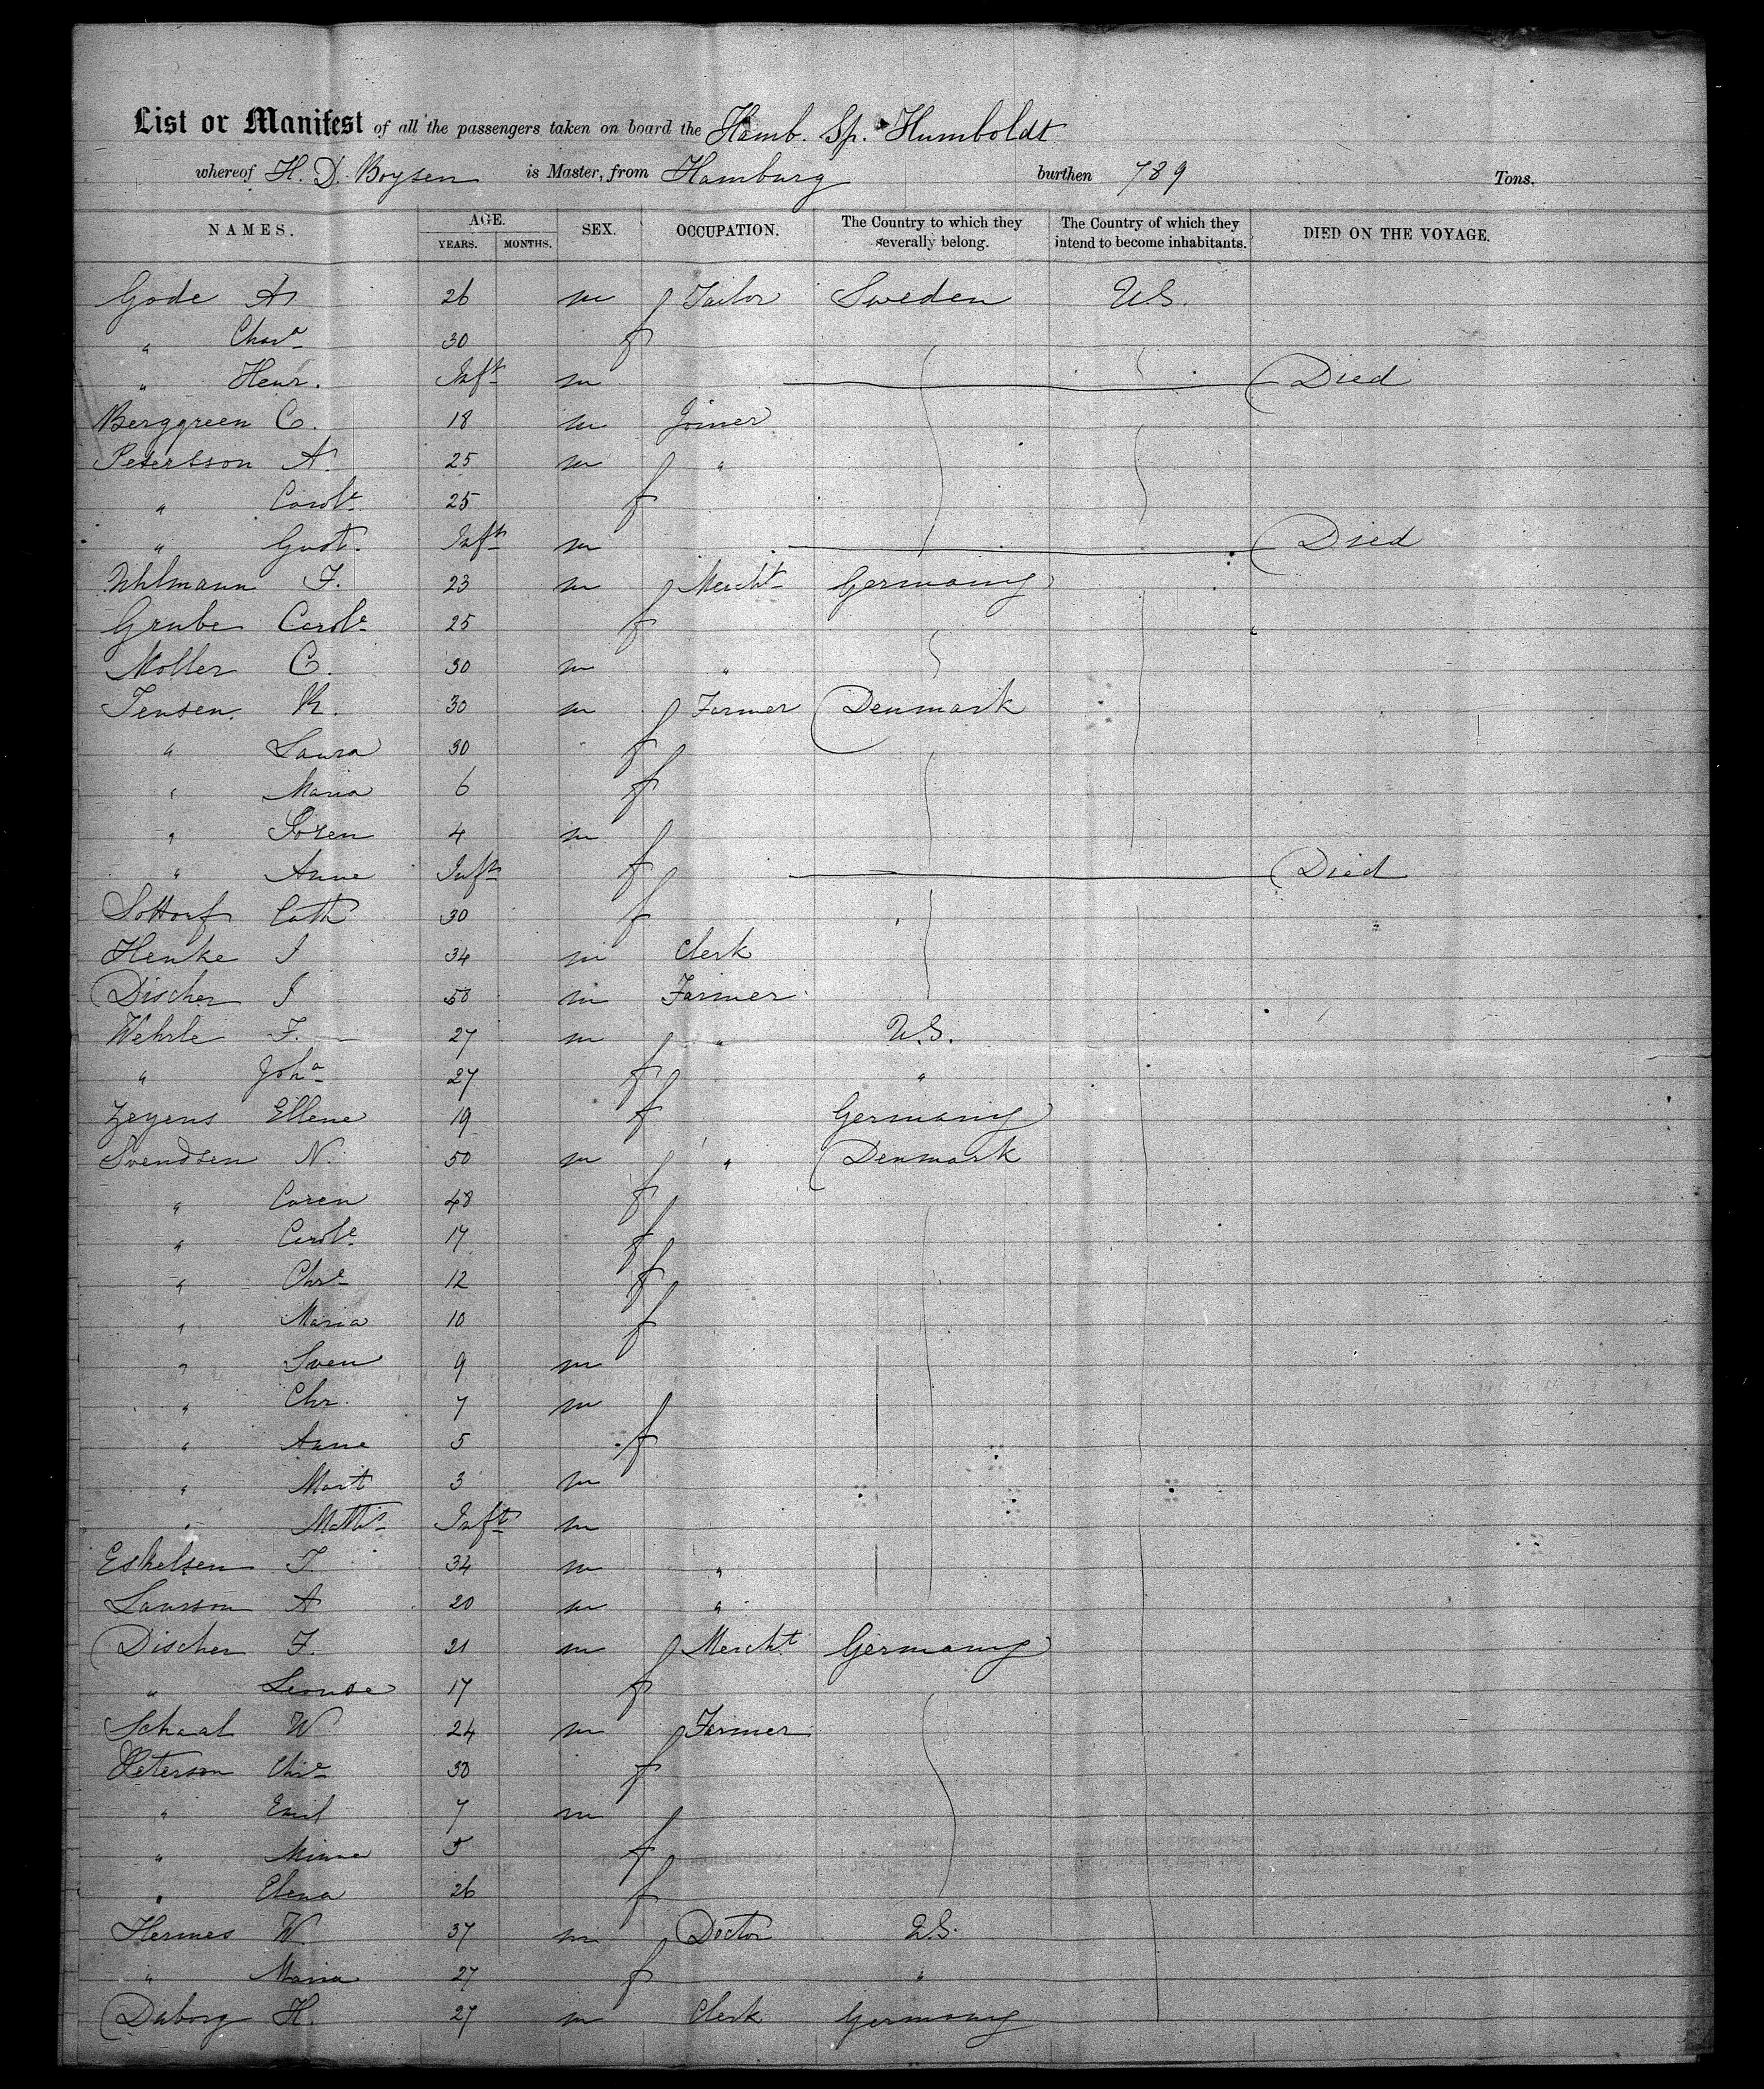 List or Manifest of all the passengers taken on board the Hamb. Sp. Humboldt
whereof H. D. Boysen is Master, from Hamburg burthen 789 Tons.
NAMES. AGE. YEARS. MONTHS. SEX. OCCUPATION. The Country to which they severally belong. The Country of which they intend to become inhabitants. DIED ON THE VOYAGE.
Gode A. 26 m Tailor Sweden U.S.
" Char.a 30 f
" Henr. Inft m Died
Berggreen C. 18 m Joiner
Petersson A. 25 m "
" Carole 25 f
" Gust. Inft m Died
Uhlmann F. 23 m Mercht Germany
Grube Carole 25 f
Moller C. 30 m "
Jensen R. 30 m Farmer Denmark
" Laura 30 f
" Maria 6 f
" Soren 4 m
" Anne Inft f Died
Sottorf Cath 30 f
Henke J 34 m Clerk
Discher J 58 m Farmer
Wehrle F. 27 m " U.S.
" Joha 27 f "
Zeyens Ellene 19 f Germany
Svendsen N. 50 m " Denmark
" Caren 48 f
" Carole 17 f
" Chre 12 f
" Maria 10 f
" Sven 9 m
" Chr. 7 m
" Anne 5 f
" Mart 3 m
" Inft m
Eskelsen T. 34 m "
Laursson A 20 m "
Discher F. 21 m Mercht Germany
" Leouse 17 f
Schaal W 24 m Farmer
Peterson Chre 30 f
" Emil 7 m
" Minna 5 f
" Elena 26 f
Hermes W. 37 m Doctor U.S.
" Maria 27 f "
Daborg H. 27 m Clerk Germany